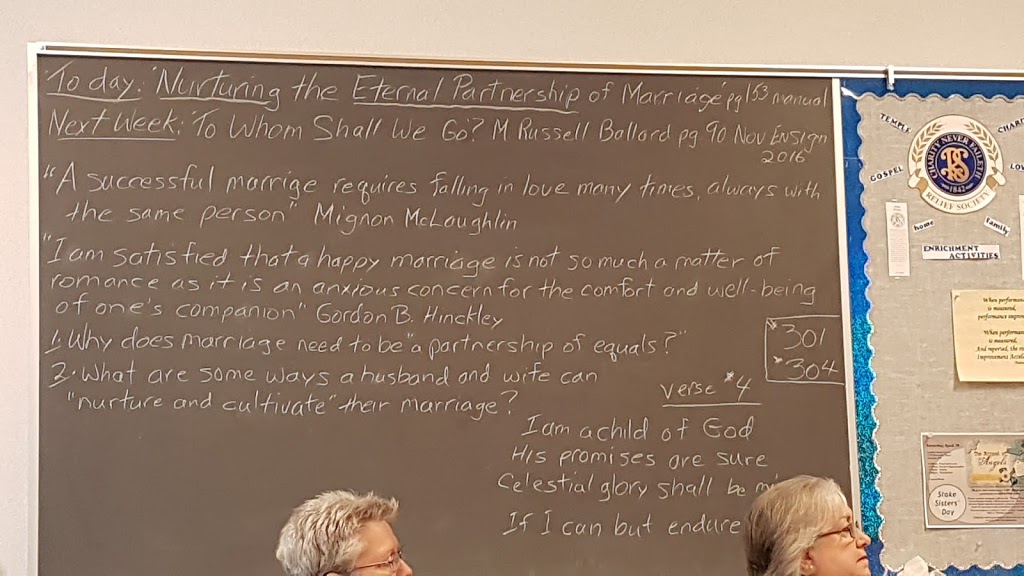 Today: "Nurturing the Eternal Partnership of Marriage" pg 153 manual
Next Week: "To Whom Shall We Go? M Russell Ballard pg 90 Nov Ensign
2016
"A successful marrige requires falling in love many times, always with
the same person" Mignon McLaughlin
"I am satisfied that a happy marriage is not so much a matter of
romance as it is an anxious concern for the comfort and well-being
of one's companion" Gordon B. Hinckley
1. Why does marriage need to be "a partnership of equals?"
2. What are some ways a husband and wife can
"nurture and cultivate" their marriage?
*301
*304
verse #4
I am a child of God
His promises are sure
Celestial glory shall be
If I can but endure
TEMPLE
GOSPEL
CHARITY NEVER FAILETH
RS
1842
RELIEF SOCIETY
home
family
ENRICHMENT
ACTIVITIES
When performance
is measured,
performance
When performance
is measured,
And reported, the
Improvement
Angels
Stake
Sisters'
Day